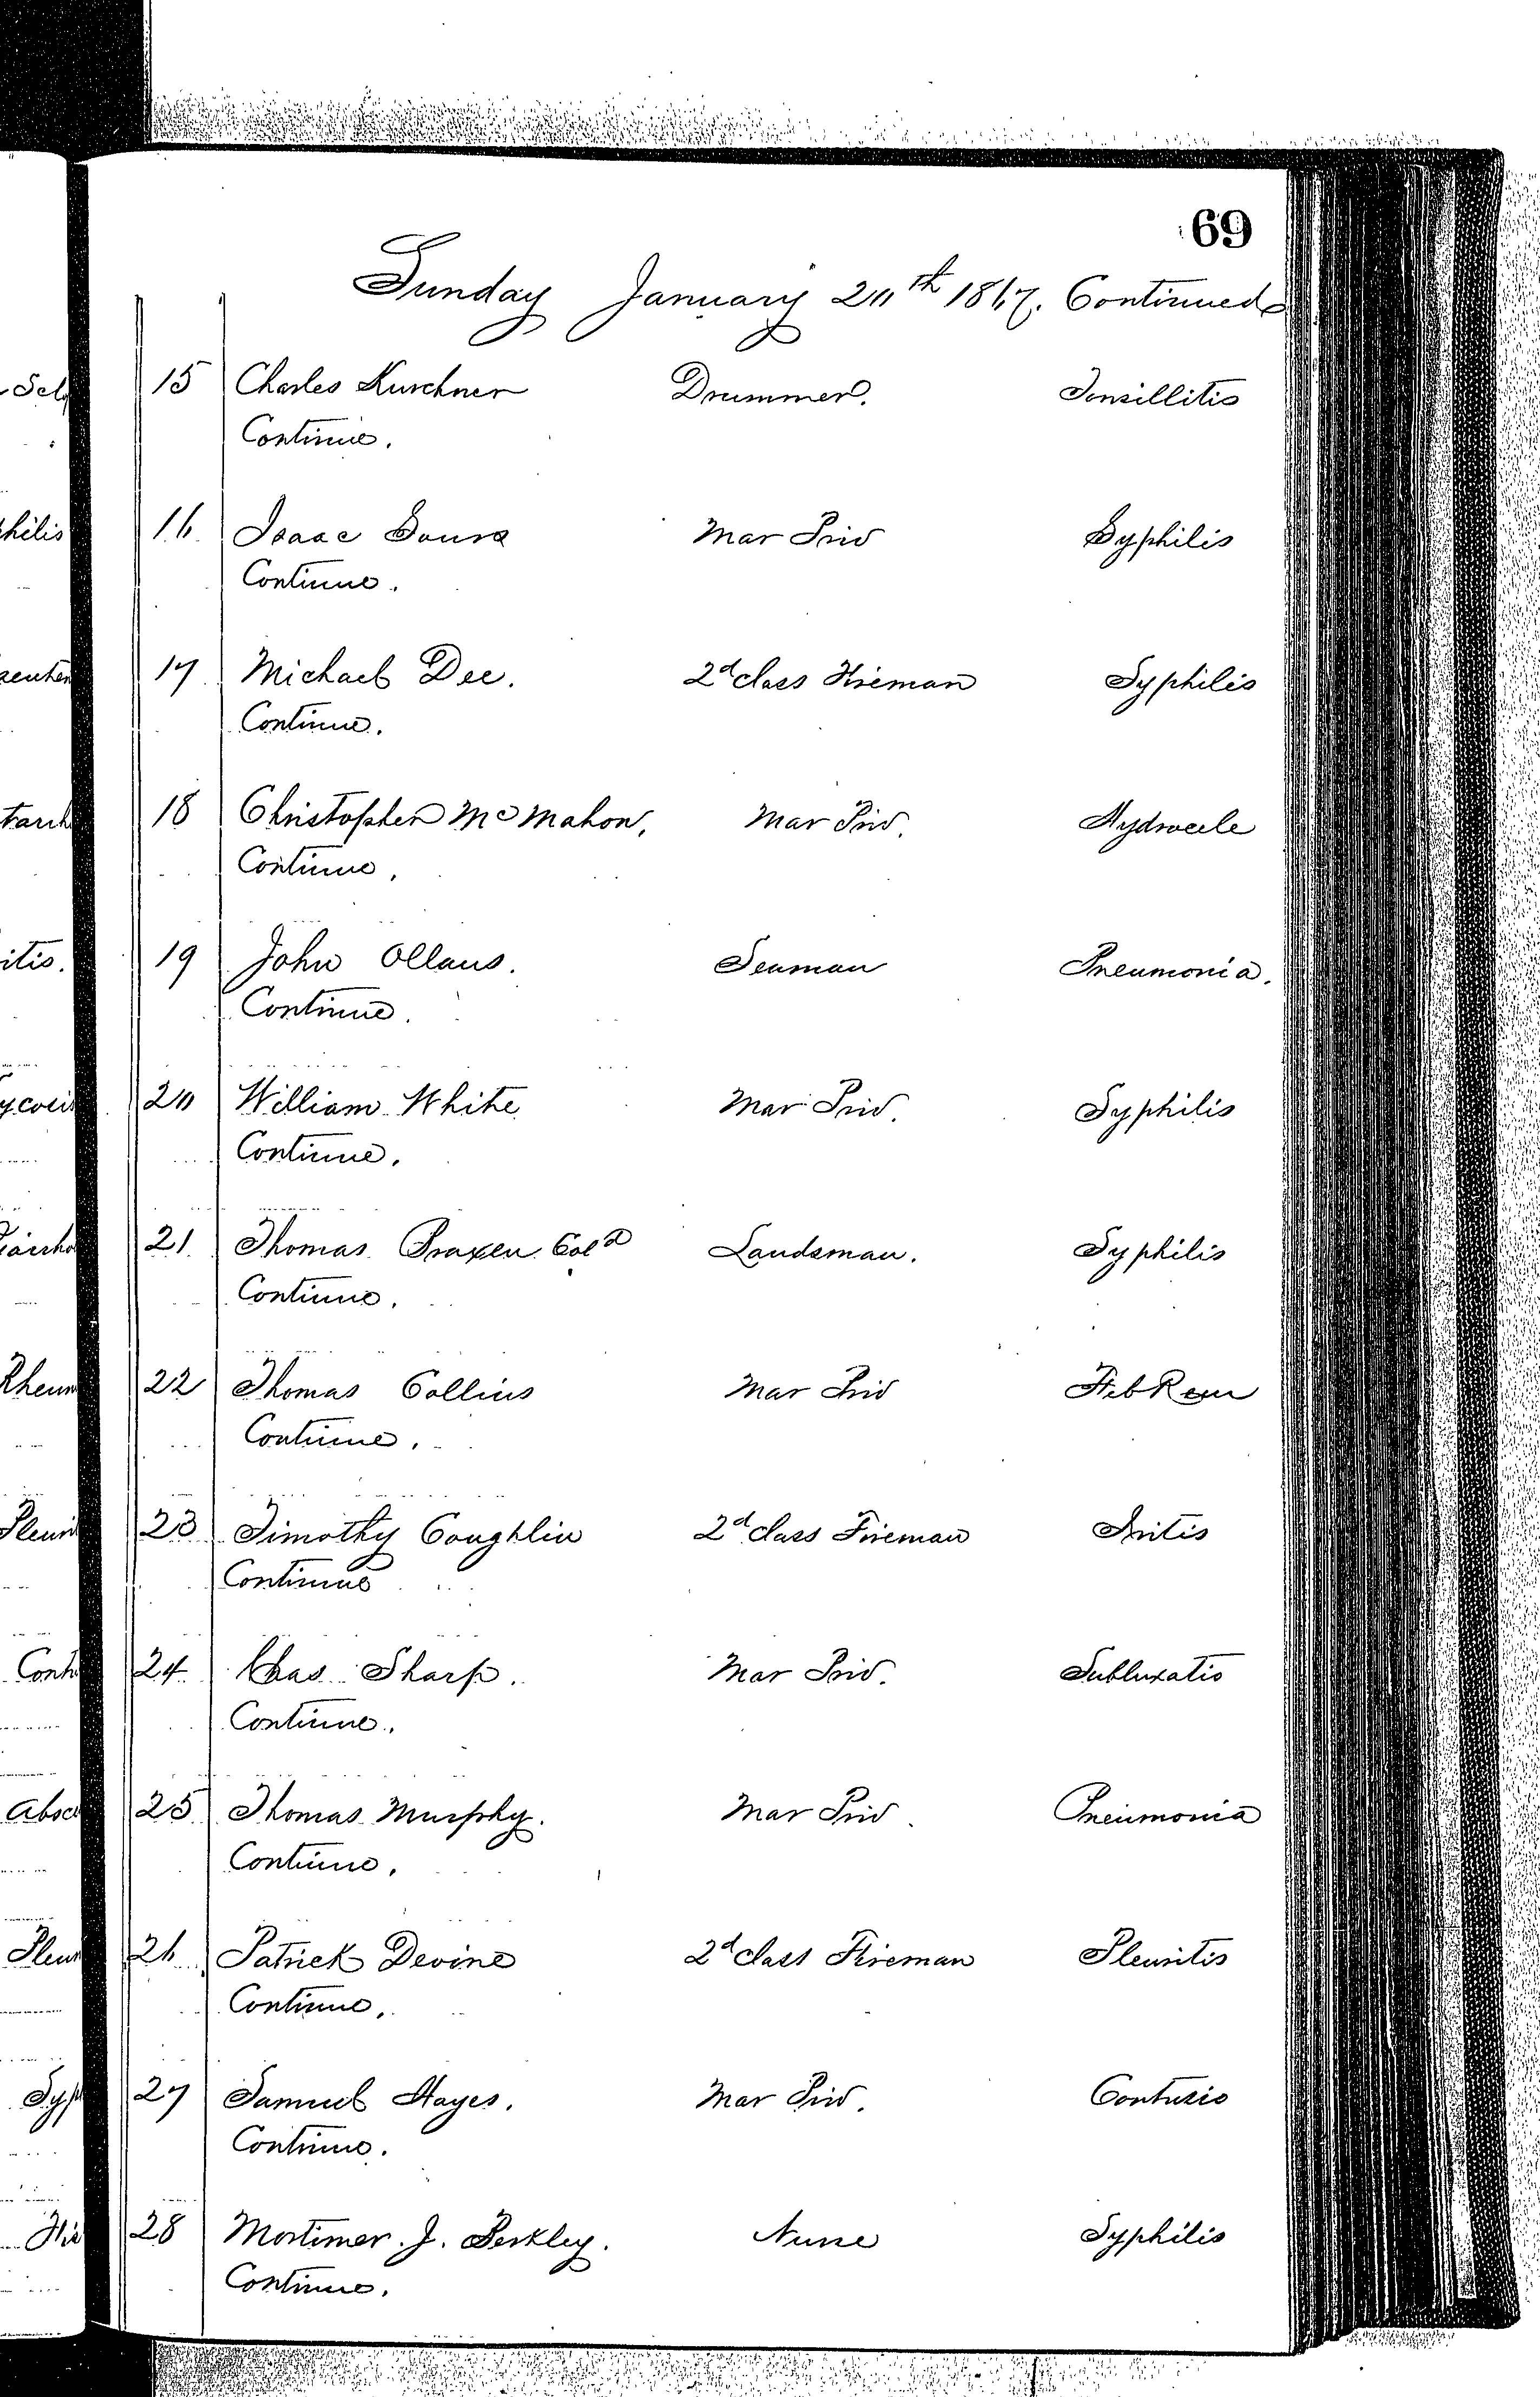 69
Sunday January 20th 1867. Continued
Self
15 Charles Kurchner Drummer. Tonsillitis
Continue.
philis 16 Isaac Sousa Mar Priv Syphilis
Continue.
17 Michael Dee. 2d class Fireman Syphilis
Continue.
18 Christopher McMahon, Mar Priv. Hydrocele
Continue,
itis. 19 John Ollaus. Seaman Pneumonia.
Continue.
20 William White Mar Priv. Syphilis
Continue.
21 Thomas Praxen Cold Landsman. Syphilis
Continue.
Rheum 22 Thomas Collins Mar Priv Feb Rem
Continue.
Pleuri 23 Timothy Coughlin 2d class Fireman Iritis
Continue
Cont 24 Chas Sharp. Mar Priv. Subluxatio
Continue.
Absc 25 Thomas Murphy. Mar Priv. Pneumonia
Continue.
Pleur 26 Patrick Devine 2d class Fireman Pleuritis
Continue.
Syp 27 Samuel Hayes. Mar Priv. Contusio
Continue.
28 Mortimer J. Berkley. Nurse Syphilis
Continue.